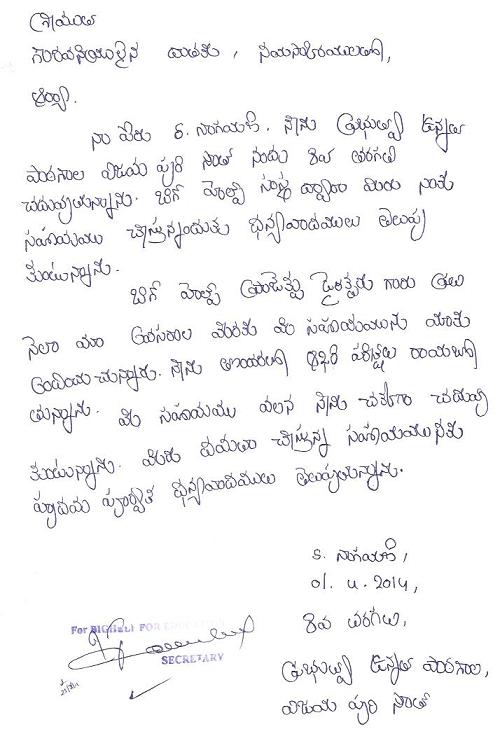 శ్రీయుత
గౌరవనీయులైన దాతకు, నమస్కారములతో,
ఆర్యా.
నా పేరు S. నాగమణి. నేను ప్రభుత్వ ఉన్నత
పాఠశాల విజయ పురి సౌత్ నందు 8వ తరగతి
చదువుతున్నాను. బిగ్ హెల్ప్ సంస్థ ద్వారా మీరు నాకు
సహాయము చేస్తున్నందుకు ధన్యవాదములు తెలుపు
కుంటున్నాను.
బిగ్ హెల్ప్ ప్రాజెక్టు డైరెక్టరు గారు ప్రతి
నెలా మా అవసరాల మేరకు మీ సహాయమును మాకు
అందించుచున్నారు. నేను త్వరలో ఆఖరి పరీక్షలు రాయబో
తున్నాను. మీ సహాయము వలన నేను చక్కగా చదువు
కుంటున్నాను. మీరు చేస్తున్న సహాయమునకు
హృదయ పూర్వక ధన్యవాదములు తెలుపుతున్నాను.
S. నాగమణి,
01. 4. 2014,
8వ తరగతి,
ప్రభుత్వ ఉన్నత పాఠశాల,
విజయ పురి సౌత్
For BIGHELP FOR EDUCATION
SECRETARY